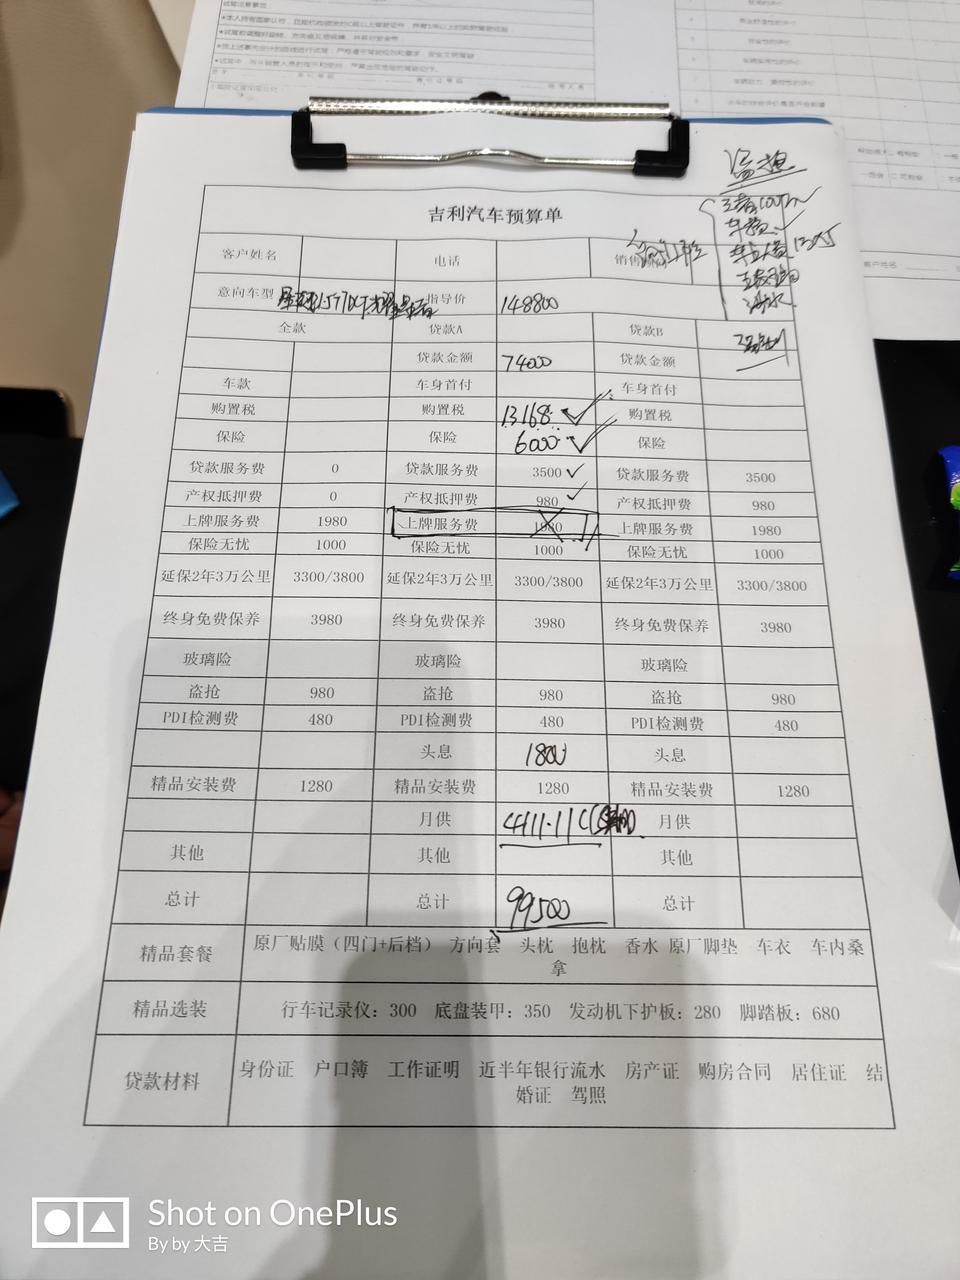 吉利汽车预算单
客户姓名 电话 销售
意向车型 指导价 148800
全款 贷款A 贷款B
贷款金额 74000 贷款金额
车款 车身首付 车身首付
购置税 购置税 13168 购置税
保险 保险 6000 保险
贷款服务费 0 贷款服务费 3500 贷款服务费 3500
产权抵押费 0 产权抵押费 980 产权抵押费 980
上牌服务费 1980 上牌服务费 1980 上牌服务费 1980
保险无忧 1000 保险无忧 1000 保险无忧 1000
延保2年3万公里 3300/3800 延保2年3万公里 3300/3800 延保2年3万公里 3300/3800
终身免费保养 3980 终身免费保养 3980 终身免费保养 3980
玻璃险 玻璃险 玻璃险
盗抢 980 盗抢 980 盗抢 980
PDI检测费 480 PDI检测费 480 PDI检测费 480
头息 1800 头息
精品安装费 1280 精品安装费 1280 精品安装费 1280
月供 4111.11 月供
其他 其他 其他
总计 总计 99500 总计
精品套餐 原厂贴膜（四门+后档） 方向套 头枕 抱枕 香水 原厂脚垫 车衣 车内桑
拿
精品选装 行车记录仪：300 底盘装甲：350 发动机下护板：280 脚踏板：680
贷款材料 身份证 户口簿 工作证明 近半年银行流水 房产证 购房合同 居住证 结
婚证 驾照
Shot on OnePlus
By by 大吉